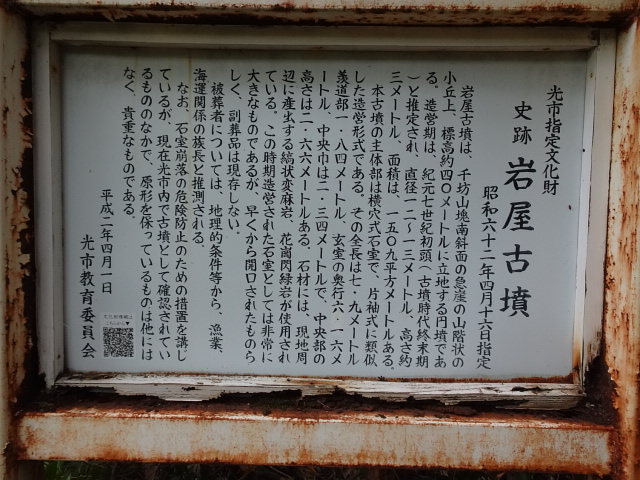 光市指定文化財
史跡 岩屋古墳
昭和六十二年四月十六日指定
岩屋古墳は、千坊山塊南斜面の急崖の山階状の
小丘上、標高約四〇メートルに立地する円墳であ
る。造営期は、紀元七世紀初頭(古墳時代終末期
)と推定され、直径一二〜一三メートル、高さ約
三メートル、面積は、一五〇九平方メートルある。
本古墳の主体部は横穴式石室で、片袖式に類似
した造営形式である。その全長は七・九メートル
羨道部一・八四メートル、玄室の奥行六・一六メ
ートル、中央巾は二・三四メートルで、中央部の
高さは二・六六メートルある。石材には、現地周
辺に産出する縞状変麻岩、花崗閃緑岩が使用され
ている。この時期造営された石室としては非常に
大きなものであるが、早くから開口されたものら
しく、副葬品は現存しない。
被葬者については、地理的条件等から、漁業、
海運関係の族長と推測される。
なお、石室崩落の危険防止のための措置を講じ
ているが、現在光市内で古墳として確認されてい
るもののなかで、原形を保っているものは他には
なく、貴重なものである。
平成二年四月一日
光市教育委員会